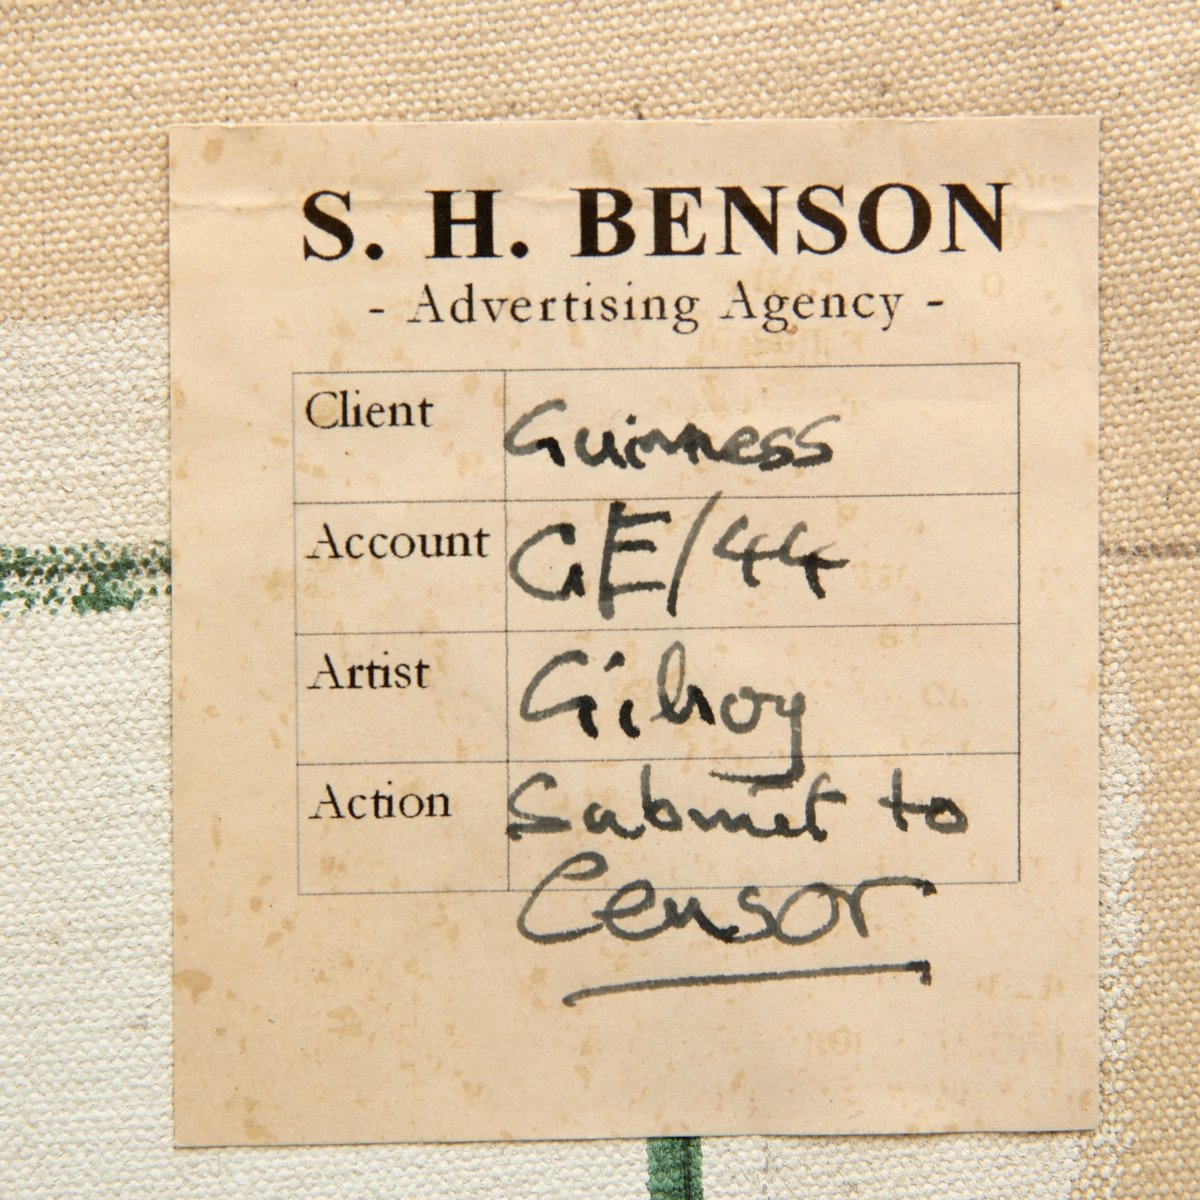 S. H. BENSON
- Advertising Agency -
Client Guinness
Account GE/44
Artist Gilroy
Action Submit to
Censor